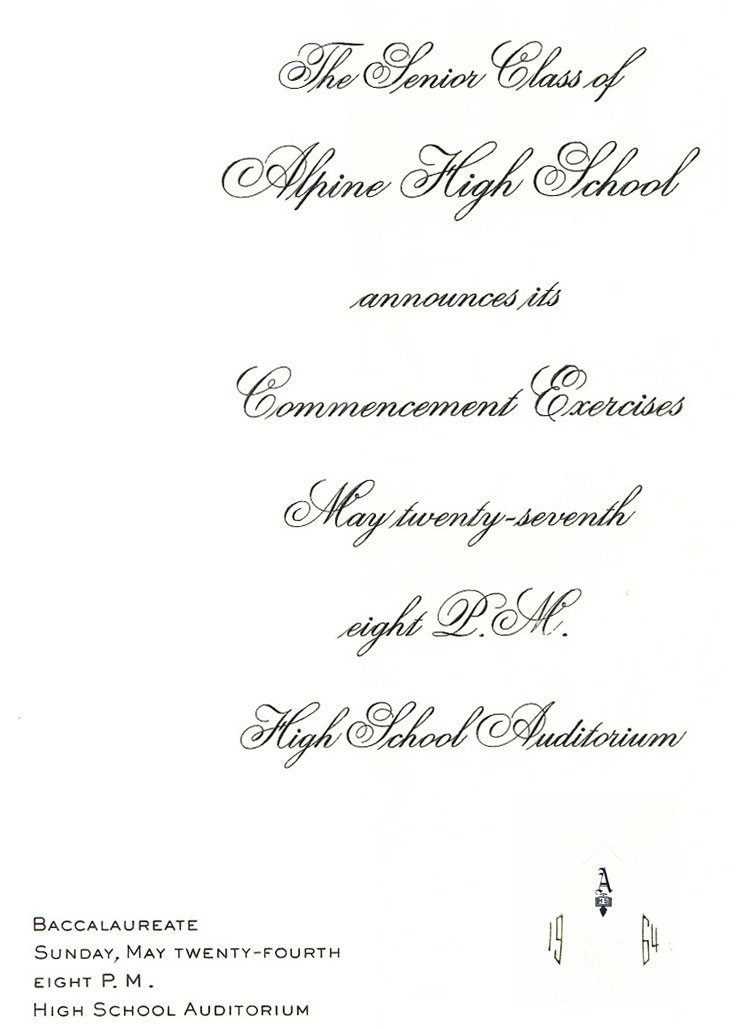 The Senior Class of
Alpine High School
announces its
Commencement Exercises
May twenty-seventh
eight P.M.
High School Auditorium
A
19 64
BACCALAUREATE
SUNDAY, MAY TWENTY-FOURTH
EIGHT P. M.
HIGH SCHOOL AUDITORIUM